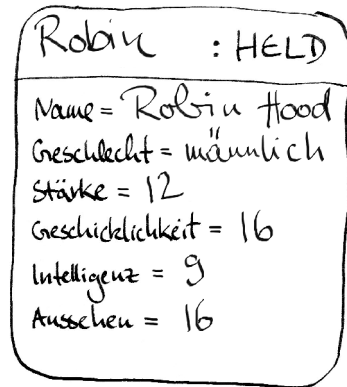 Robin : HELD
Name = Robin Hood
Geschlecht = männlich
Stärke = 12
Geschicklichkeit = 16
Intelligenz = 9
Aussehen = 16